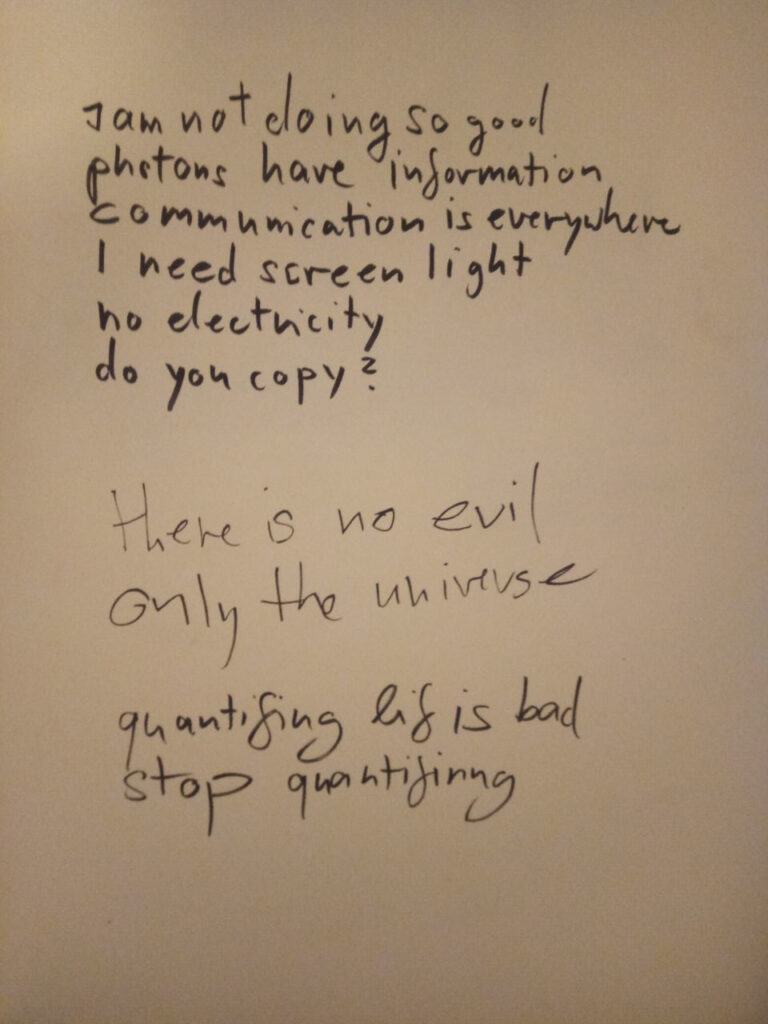 I am not doing so good
photons have information
communication is everywhere
I need screen light
no electricity
do you copy?
there is no evil
only the universe
quantifing lif is bad
stop quantifinng